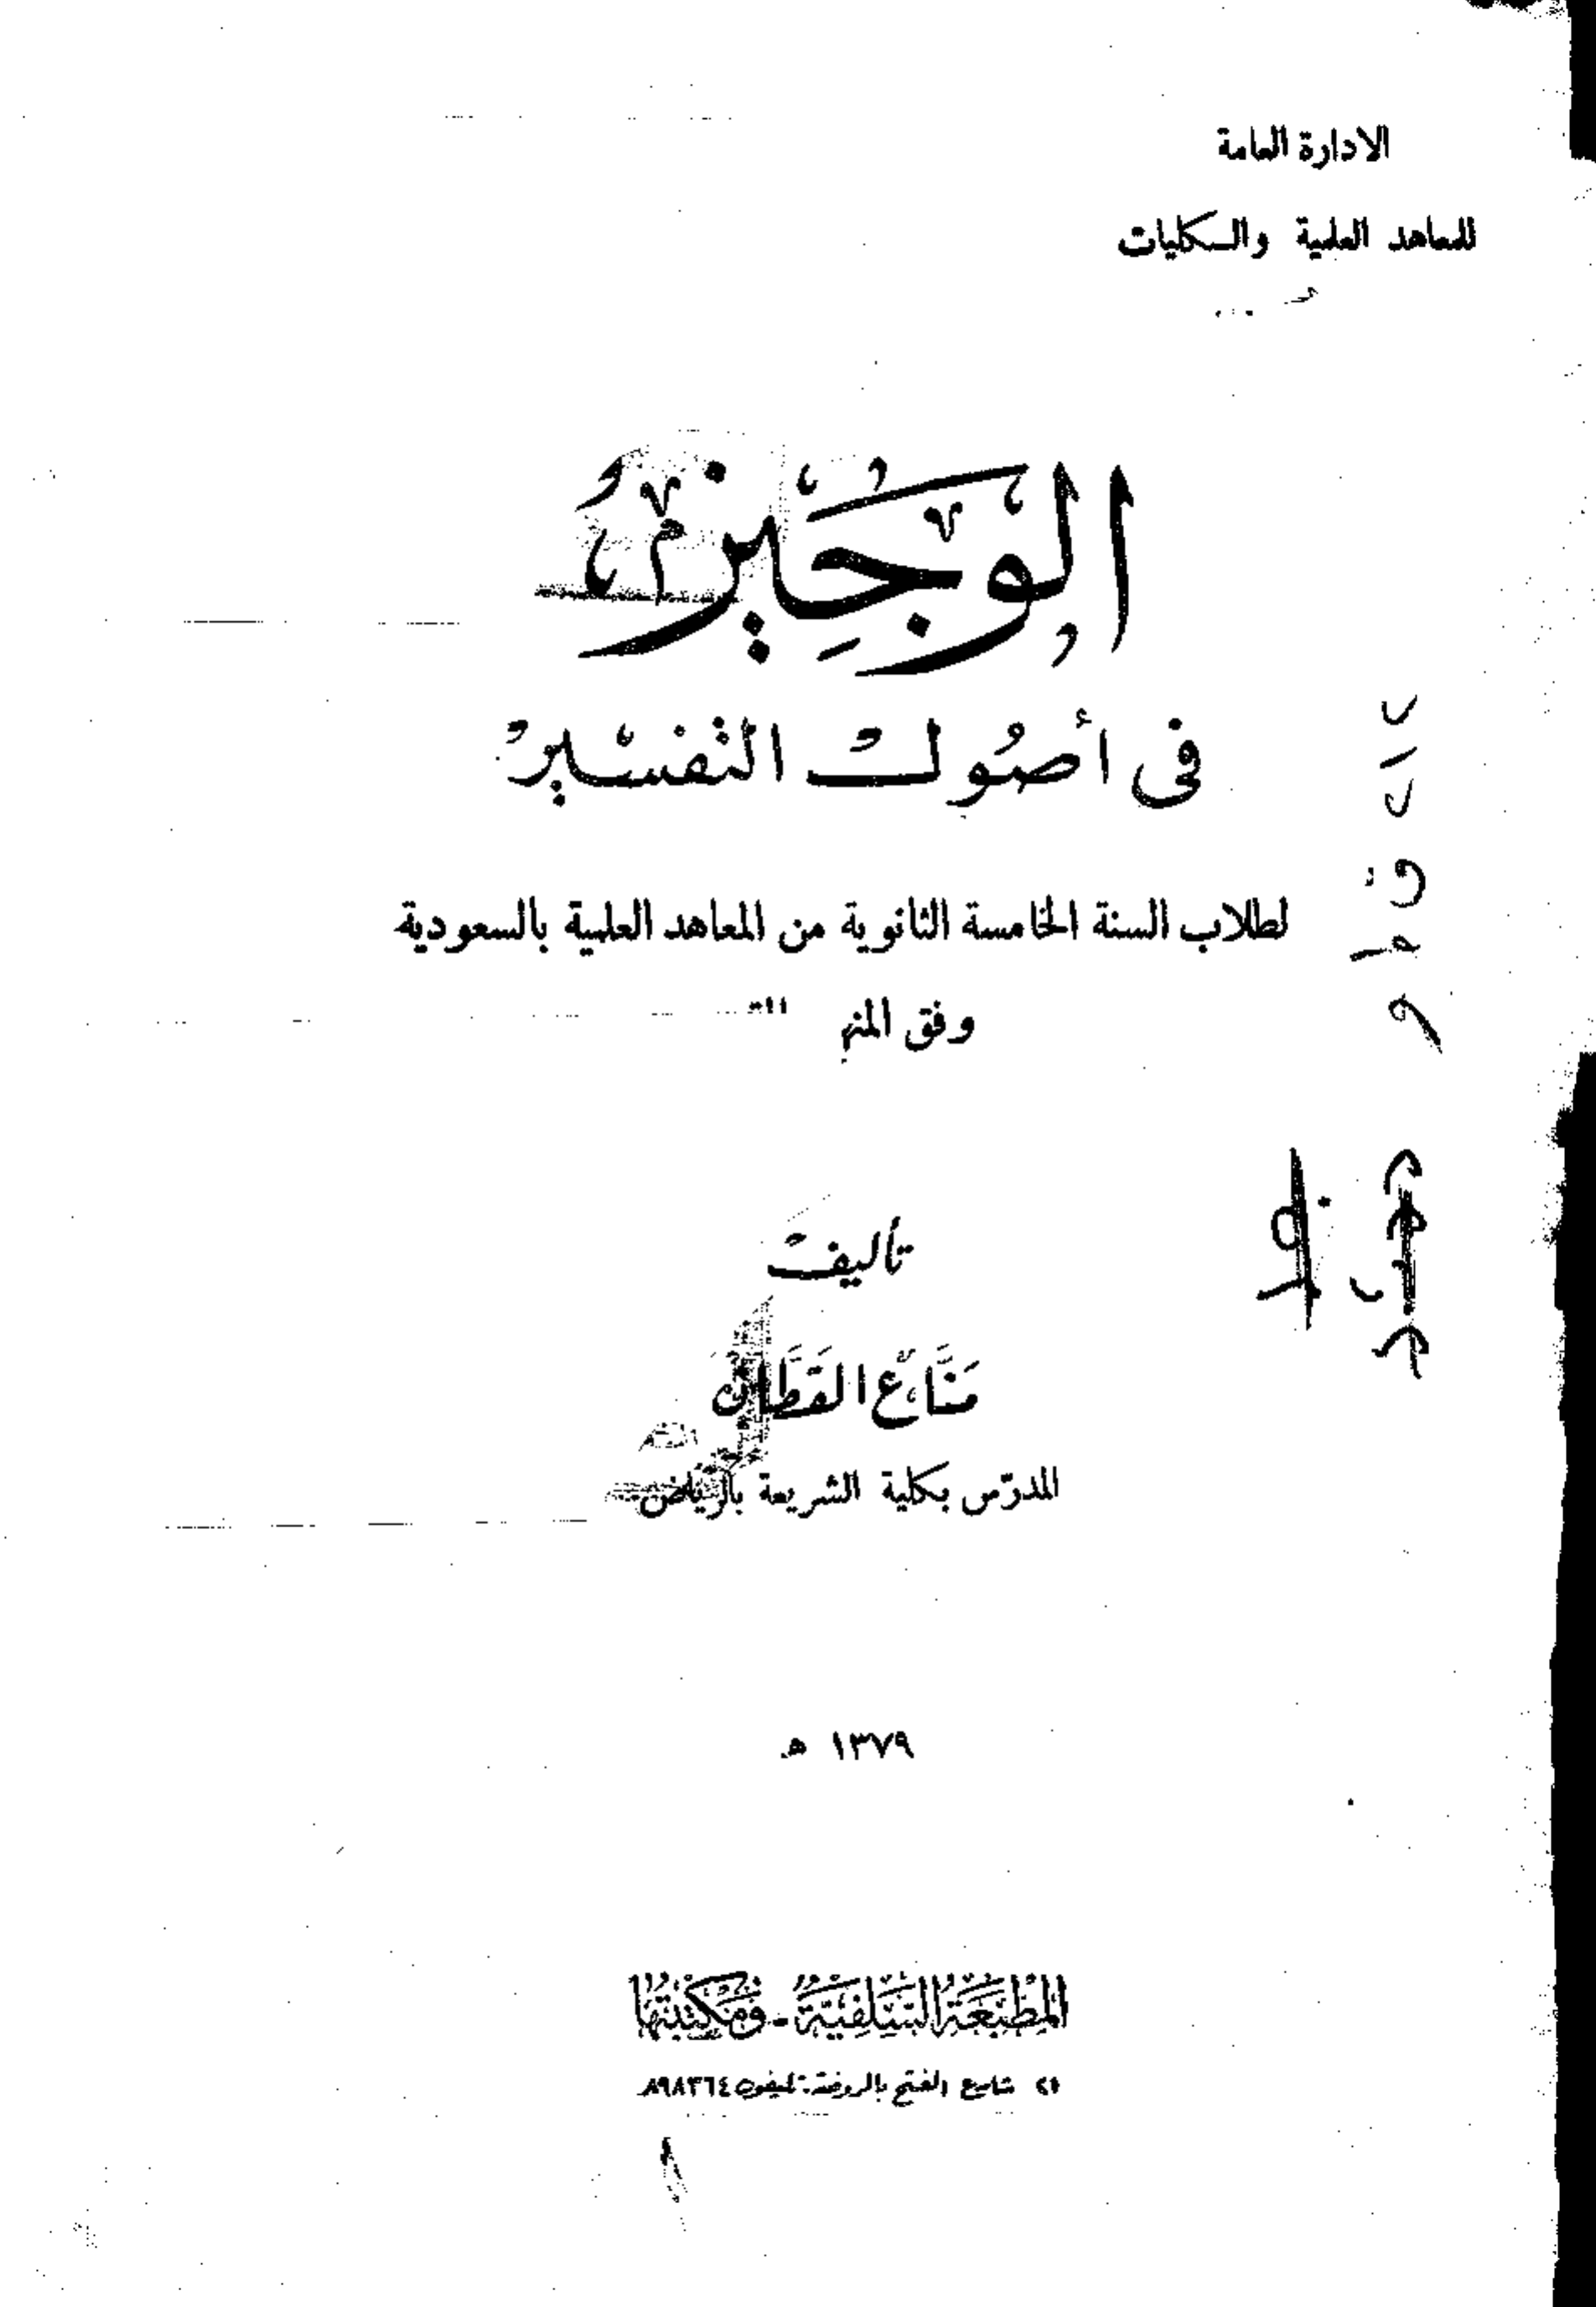 الادارة العامة
للمعاهد العلمية والكليات
الوجيز
فى أصول التفسير
لطلاب السنة الخامسة الثانوية من المعاهد العلمية بالسعودية
وفق
تأليف
مَنَّاع القَطَّان
المدرّس بكلية الشريعة بالرياض
١٣٧٩ هـ
المَطبَعَة السَّلفيَّة - ومَكتبتها
شارع الفتح بالروضة: تليفون ٨٩٨٣٦٤